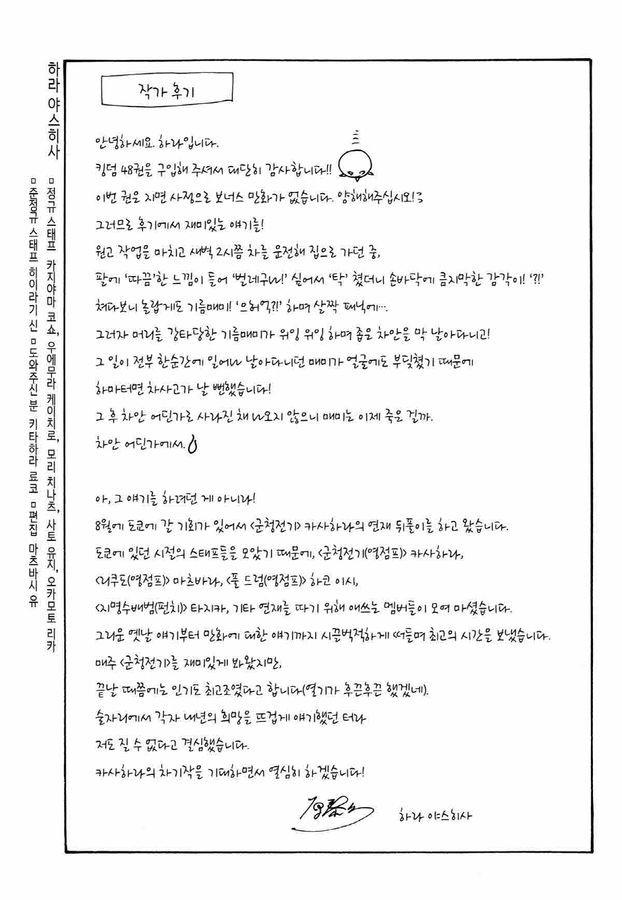 작가 후기
안녕하세요. 하라입니다.
킹덤 48권을 구입해 주셔서 대단히 감사합니다!!
이번 권은 지면 사정으로 보너스 만화가 없습니다. 양해해주십시오!
그러므로 후기에서 재미있는 얘기를!
원고 작업을 마치고 새벽 2시쯤 차를 운전해 집으로 가던 중,
팔에 '따끔'한 느낌이 들어 '벌레구나!' 싶어서 '탁' 쳤더니 손바닥에 큼지막한 감각이! '?!'
쳐다보니 놀랍게도 기름매미! '으허억?!' 하며 살짝 패닉에….
그러자 머리를 강타당한 기름매미가 위잉 위잉 하며 좁은 차안을 막 날아다니고!
그 일이 전부 한순간에 일어나 날아다니던 매미가 얼굴에도 부딪쳤기 때문에
하마터면 차사고가 날 뻔했습니다!
그 후 차안 어딘가로 사라진 채 나오지 않으니 매미는 이제 죽은 걸까.
차안 어딘가에서.
아, 그 얘기를 하려던 게 아니라!
8월에 도쿄에 갈 기회가 있어서 <군청전기> 카사하라의 연재 뒤풀이를 하고 왔습니다.
도쿄에 있던 시절의 스태프들을 모았기 때문에, <군청전기(영점프)> 카사하라,
<리쿠도(영점프)> 마츠바라, <풀 드럼(영점프)> 하코 이시,
<지명수배범(펀치)> 타지카, 기타 연재를 따기 위해 애쓰는 멤버들이 모여 마셨습니다.
그리운 옛날 얘기부터 만화에 대한 얘기까지 시끌벅적하게 떠들며 최고의 시간을 보냈습니다.
매주 <군청전기>를 재미있게 봐왔지만,
끝날 때쯤에는 인기도 최고조였다고 합니다(열기가 후끈후끈 했겠네).
술자리에서 각자 내년의 희망을 뜨겁게 얘기했던 터라
저도 질 수 없다고 결심했습니다.
카사하라의 차기작을 기대하면서 열심히 하겠습니다!
하라 야스히사
하라 야스히사
▫정규 스태프 카지야마 코쇼, 우에무라 케이치로, 모리 치나츠, 사토 유지, 오카모토 리카
▫준정규 스태프 히이라기 신 ▫도와주신 분 키타하라 료코 ▫편집 마츠바시 유